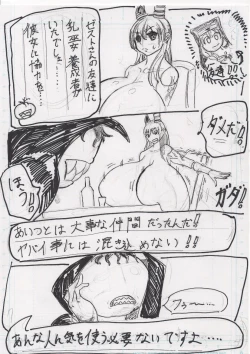 ゼストさんの友達に
乳巫女養成者が
いたでしょ…
彼女に協力を…
友達!!
ダメだ!!
ガタ!
ほう!!
あいつとは大事な仲間だったんだ!!
ヤバイ事には混き込めない!!
フゥ〜……
あんな人に気を使う必要ないですよ……